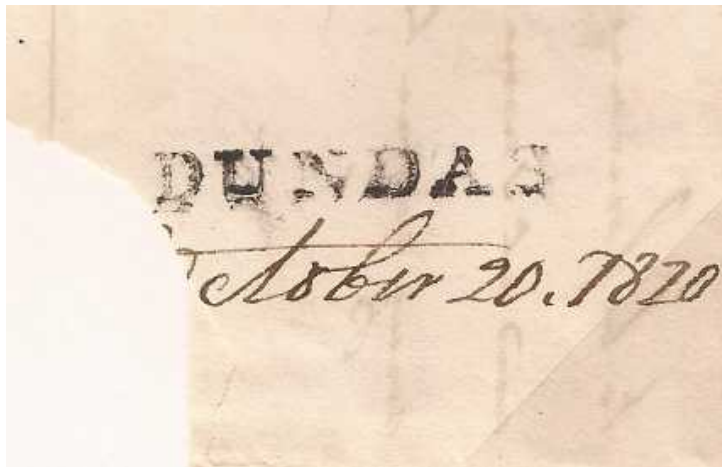 DUNDAS
October 20. 1820